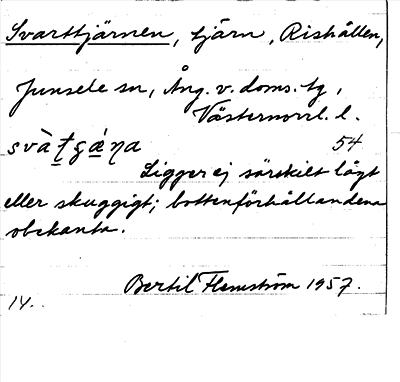 Svarttjärnen, tjärn, Rishållen,
Junsele sn, Ång. v. doms. tg,
Västernorrl. l.
svàt̠gá̠ŋa 54
Ligger ej särskilt lågt
eller skuggigt; bottenförhållandena
obekanta.
Bertil Flemström 1957.
14.